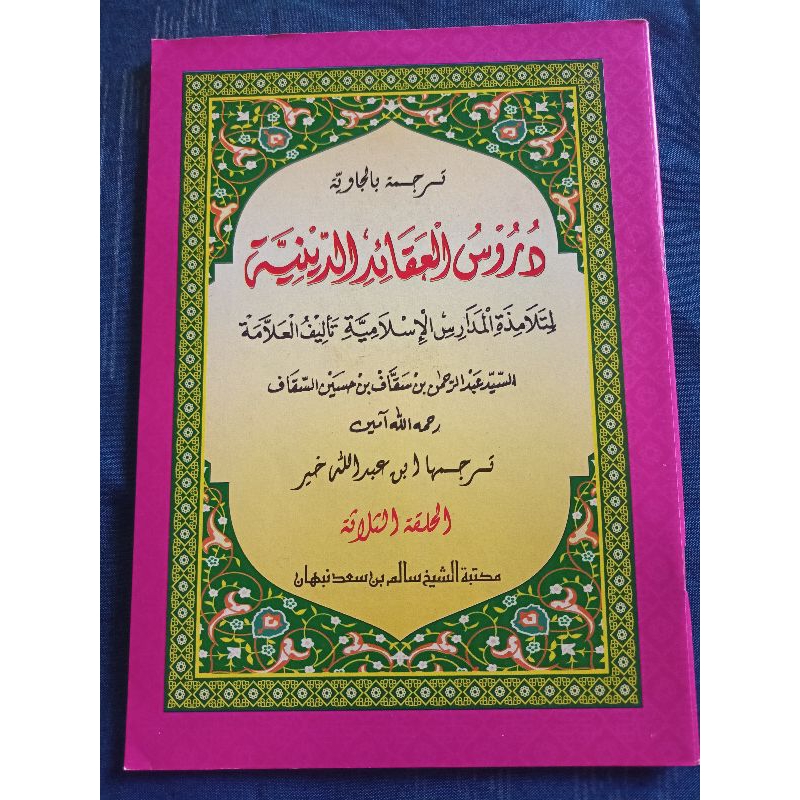 ترجمة بالجاوية
دُرُوْسُ الْعَقَائِدِ الدِّيْنِيَّةِ
لِتَلَامِذَةِ الْمَدَارِسِ الْإِسْلَامِيَّةِ تَأْلِيْفُ الْعَلَّامَة
السيّد عبد الرحمن بن سقّاف بن حسين السقاف
رحمه الله آمين
ترجمها ابن عبد الله خير
الحلقة الثلاثة
مكتبة الشيخ سالم بن سعد نبهان